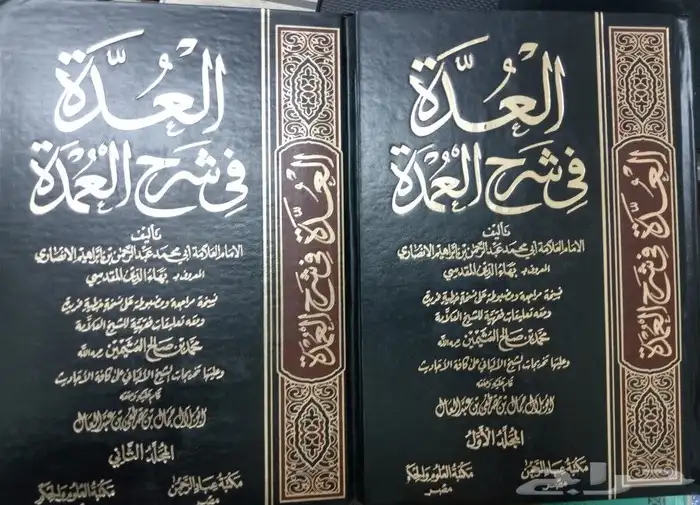 العُدَّة
في شرح العُمْدة
تأليف
الإمام العلامة أبي محمد عبد الرحمن بن إبراهيم الأنصاري
المعروف بـ بهاء الدين المقدسي
نسخة مراجعة ومضبوطة على نسخة خطية فريدة
ومعه تعليقات فقهية للشيخ العلامة
محمد بن صالح العثيمين رحمه الله
وعليها تخريجات الشيخ الألباني على كافة الأحاديث
المجلد الأول
مكتبة عباد الرحمن
مصر
مكتبة العلوم والحكم
مصر
العُدَّة في شرح العُمْدة
العُدَّة
في شرح العُمْدة
تأليف
الإمام العلامة أبي محمد عبد الرحمن بن إبراهيم الأنصاري
المعروف بـ بهاء الدين المقدسي
نسخة مراجعة ومضبوطة على نسخة خطية فريدة
ومعه تعليقات فقهية للشيخ العلامة
محمد بن صالح العثيمين رحمه الله
وعليها تخريجات الشيخ الألباني على كافة الأحاديث
المجلد الثاني
مكتبة عباد الرحمن
مصر
مكتبة العلوم والحكم
مصر
العُدَّة في شرح العُمْدة
حراج